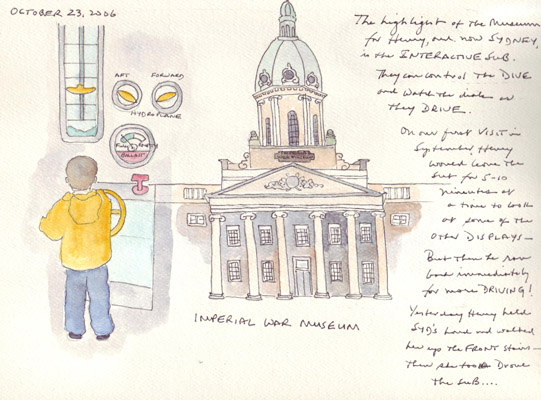 OCTOBER 23, 2006
AFT FORWARD
HYDROPLANE
FULL EMPTY
BALLAST
IMPERIAL WAR MUSEUM
The highlight of the Museum
for Henry, and now SYDNEY,
is the INTERACTIVE SUB.
They can control the DIVE
and watch the dials as
they DRIVE.
On our first VISIT in
September, Henry
would leave the
sub for 5-10
minutes at
a time to look
at some of the
other DISPLAYS —
But then he ran
back immediately
for more DRIVING!
Yesterday Henry held
SYD's hand and walked
her up the FRONT stairs —
then she too Drove
the SUB....